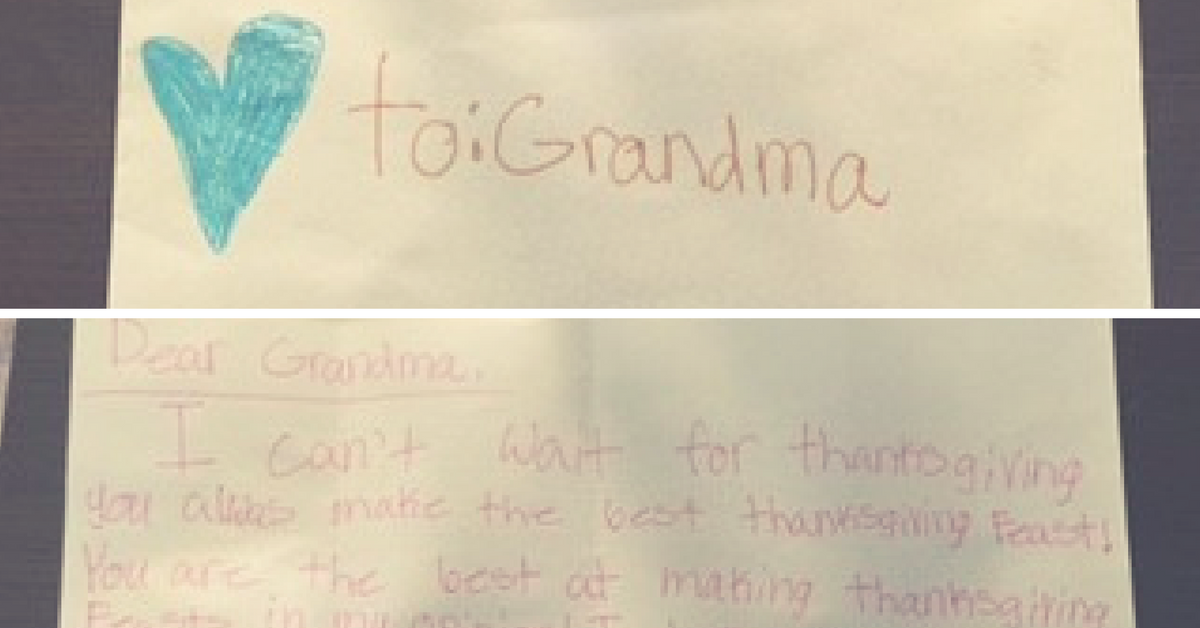 to: Grandma
Dear Grandma.
I can't wait for thanksgiving
you make the best thanksgiving Feast!
You are the best at making thanksgiving
Feasts in my